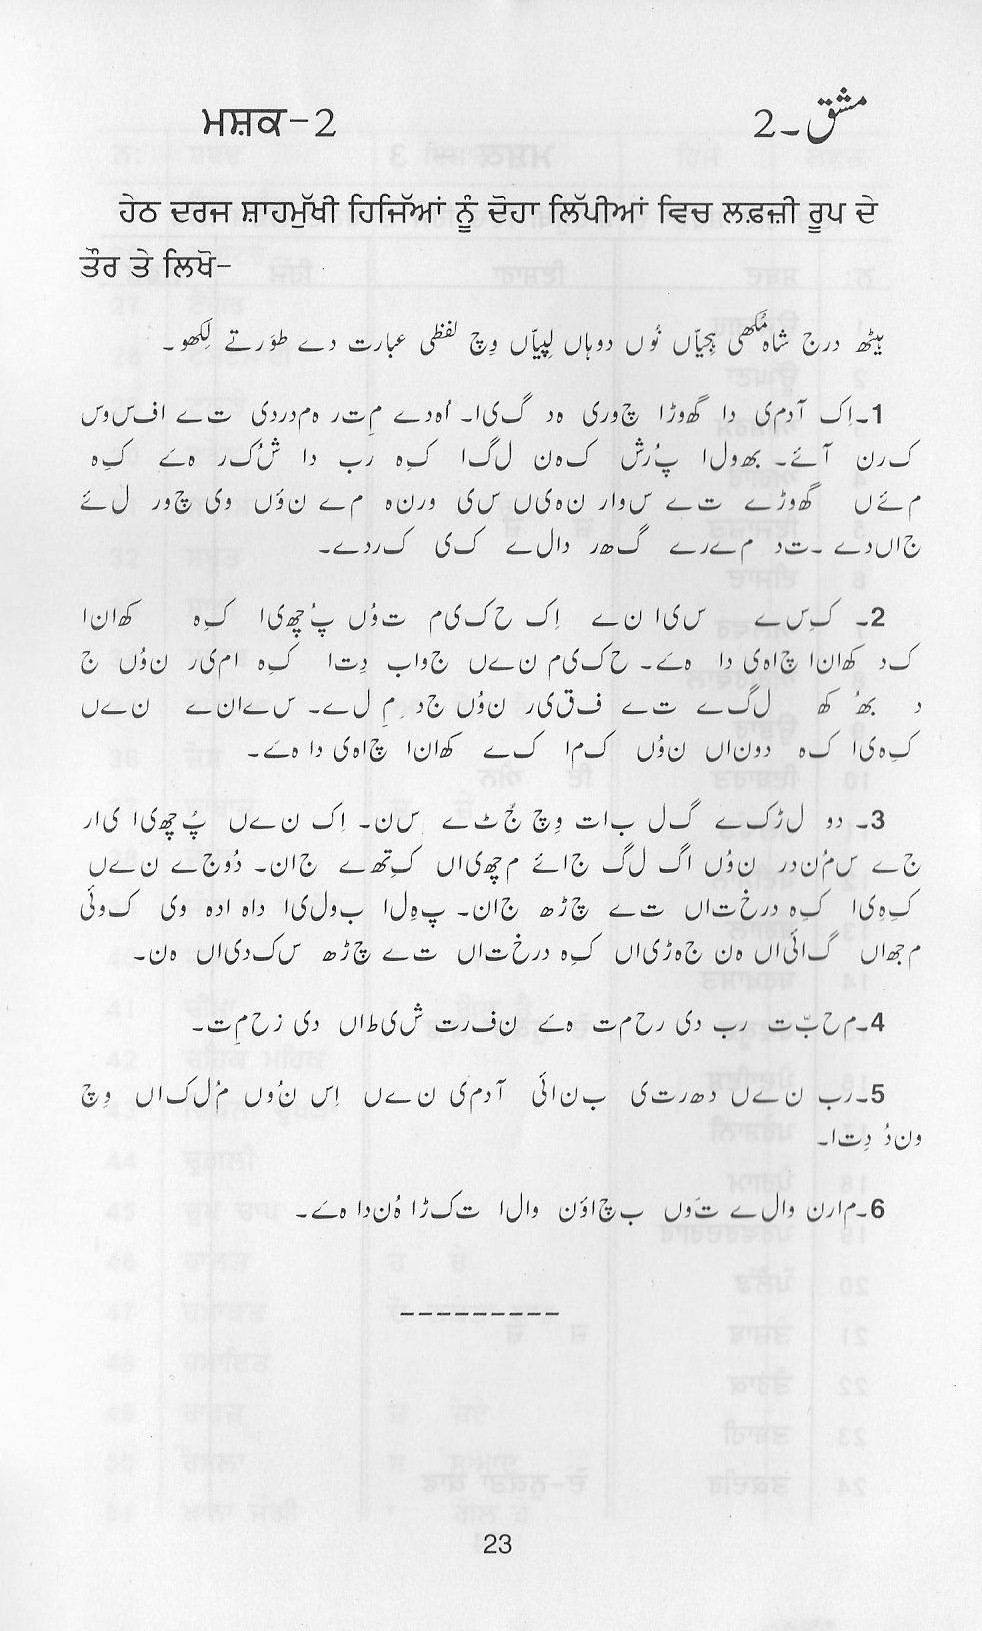 ਮਸ਼ਕ-2 مشق ۔2
ਹੇਠ ਦਰਜ ਸ਼ਾਹਮੁੱਖੀ ਹਿਜਿੱਆਂ ਨੂੰ ਦੋਹਾ ਲਿੱਪੀਆਂ ਵਿਚ ਲਫ਼ਜ਼ੀ ਰੂਪ ਦੇ
ਤੌਰ ਤੇ ਲਿਖੋ-
ہیٹھ درج شاہ مُکھی ہِجیّاں نُوں دوہاں لِپیّاں وِچ لفظی عبارت دے طوَرتے لِکھو۔
1۔اِک آدمی دا گھوڑا چوری ہد گیا۔ اُہدے مِتر ہمدردی تے افسوس
کرن آئے۔ بھولا پُرش کہن لگا کہِ رب دا شُکر ہے کہِ
مئیں گھوڑے تے سوار نہیں سی ورنہ مے نوُں وی چور لئے
جاںدے ۔تد میرے گھر دالے کی کردے۔
2۔ کِسے سیانے اِک حکیم توُں پُچھیا کہِ کھانا
کد کھانا چاہیدا ہے۔ حکیم نےں جواب دِتا کہِ امیر نوُں ج
د بھُکھ لگے تے فقیر نوُں جد مِلے۔ سےانے نےں
کہِیا کہ دوناں نوُں کما کے کھانا چاہیدا ہےَ۔
3۔ دو لڑکے گل بات وِچ جُٹے سن۔ اِک نےں پُچھیا یار
جے سمُندر نوُں اگ لگ جائے مچھیاں کِتھے جان۔ دُوجے نےں
کہِیا کہِ درختاں تے چڑھ جان۔ پہِلا بولیا داہ اہ وی کوئی
مجھاں گائیاں ہن جہڑیاں کہِ درختاں تے چڑھ سکدیاں ہن۔
4۔محبّت رب دی رحمت ہے نفرت شیطاں دی زحمِت۔
5۔رب نےں دھرتی بنائی آدمی نےں اِس نوُں مُلکاں وِچ
ونڈ دِتا۔
6۔مارن والے توَں بچاؤن والا تکڑا ہُندا ہے۔
---------
23